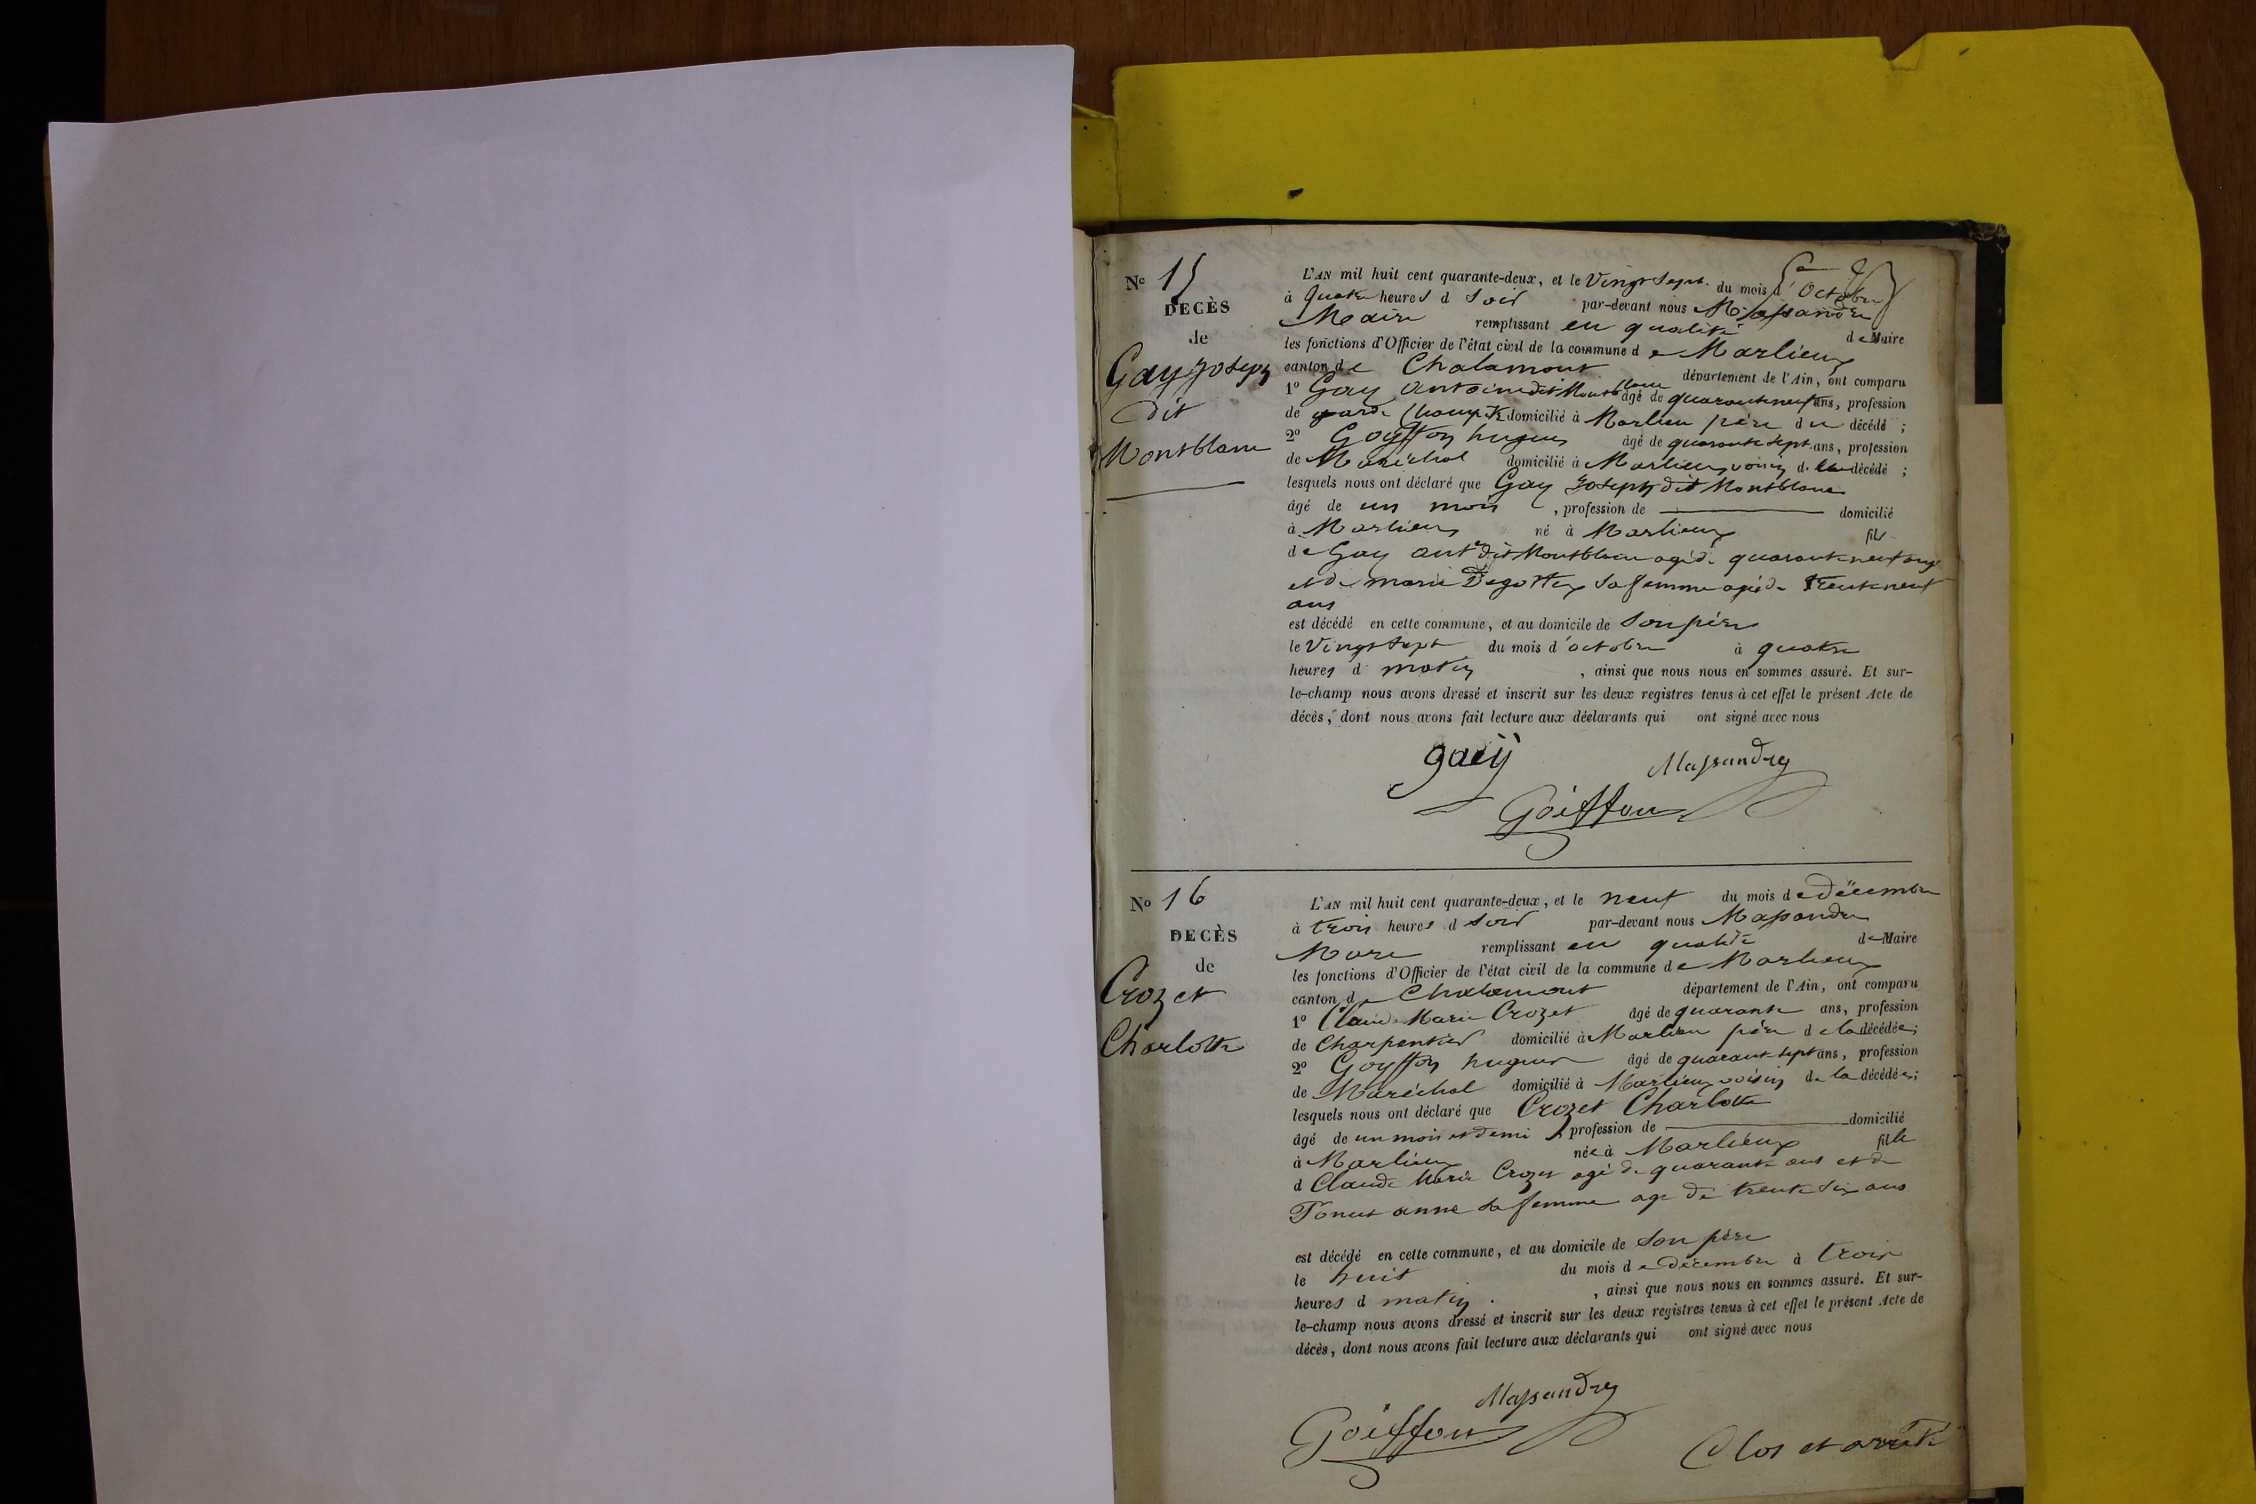 N° 15
DECÈS
de
Gay Joseph
dit
Montblanc
L'AN mil huit cent quarante-deux, et le Vingt Sept du mois d'Octobre
à quatre heures d soir par-devant nous Massandre
Maire remplissant en qualité de Maire
les fonctions d'Officier de l'état civil de la commune de Marlieux
canton de Chalamont département de l'Ain, ont comparu
1° Gay antoine dit Montblanc âgé de quarante neuf ans, profession
de garde domicilié à Marlieu père du décédé ;
2° Goyffon hugues âgé de quarante sept ans, profession
de Maréchal domicilié à Marlieux voisin d. décédé ;
lesquels nous ont déclaré que Gay Joseph dit Montblanc
âgé de un mois , profession de domicilié
à Marlieux né à Marlieux fils
de Gay ant.e dit Montblanc agé de quarante neuf ans
et de marie Degottex sa femme agé de trente neuf
ans
est décédé en cette commune, et au domicile de son père
le Vingt sept du mois d'octobre à quatre
heures d matin , ainsi que nous nous en sommes assuré. Et sur-
le-champ nous avons dressé et inscrit sur les deux registres tenus à cet effet le présent Acte de
décès, dont nous avons fait lecture aux déclarants qui ont signé avec nous
gaeÿ
Massandre
Goiffon
N° 16
DECÈS
de
Crozet
Charlotte
L'AN mil huit cent quarante-deux, et le neuf du mois de décembre
à trois heures d soir par-devant nous Massandre
Maire remplissant en qualité de Maire
les fonctions d'Officier de l'état civil de la commune de Marlieux
canton de Chalamont département de l'Ain, ont comparu
1° Claude Marie Crozet âgé de quarante ans, profession
de Charpentier domicilié à Marlieu père de la décédée ;
2° Goyffon hugues âgé de quarante sept ans, profession
de Maréchal domicilié à Marlieux voisin de la décédée ;
lesquels nous ont déclaré que Crozet Charlotte
âgé de un mois et demi , profession de domicilié
à Marlieux née à Marlieux fille
d Claude Marie Crozet agé de quarante ans et de
anne sa femme age de trente six ans
est décédé en cette commune, et au domicile de son père
le huit du mois de décembre à trois
heures d matin , ainsi que nous nous en sommes assuré. Et sur-
le-champ nous avons dressé et inscrit sur les deux registres tenus à cet effet le présent Acte de
décès, dont nous avons fait lecture aux déclarants qui ont signé avec nous
Massandre
Goiffon
Clos et arrêté